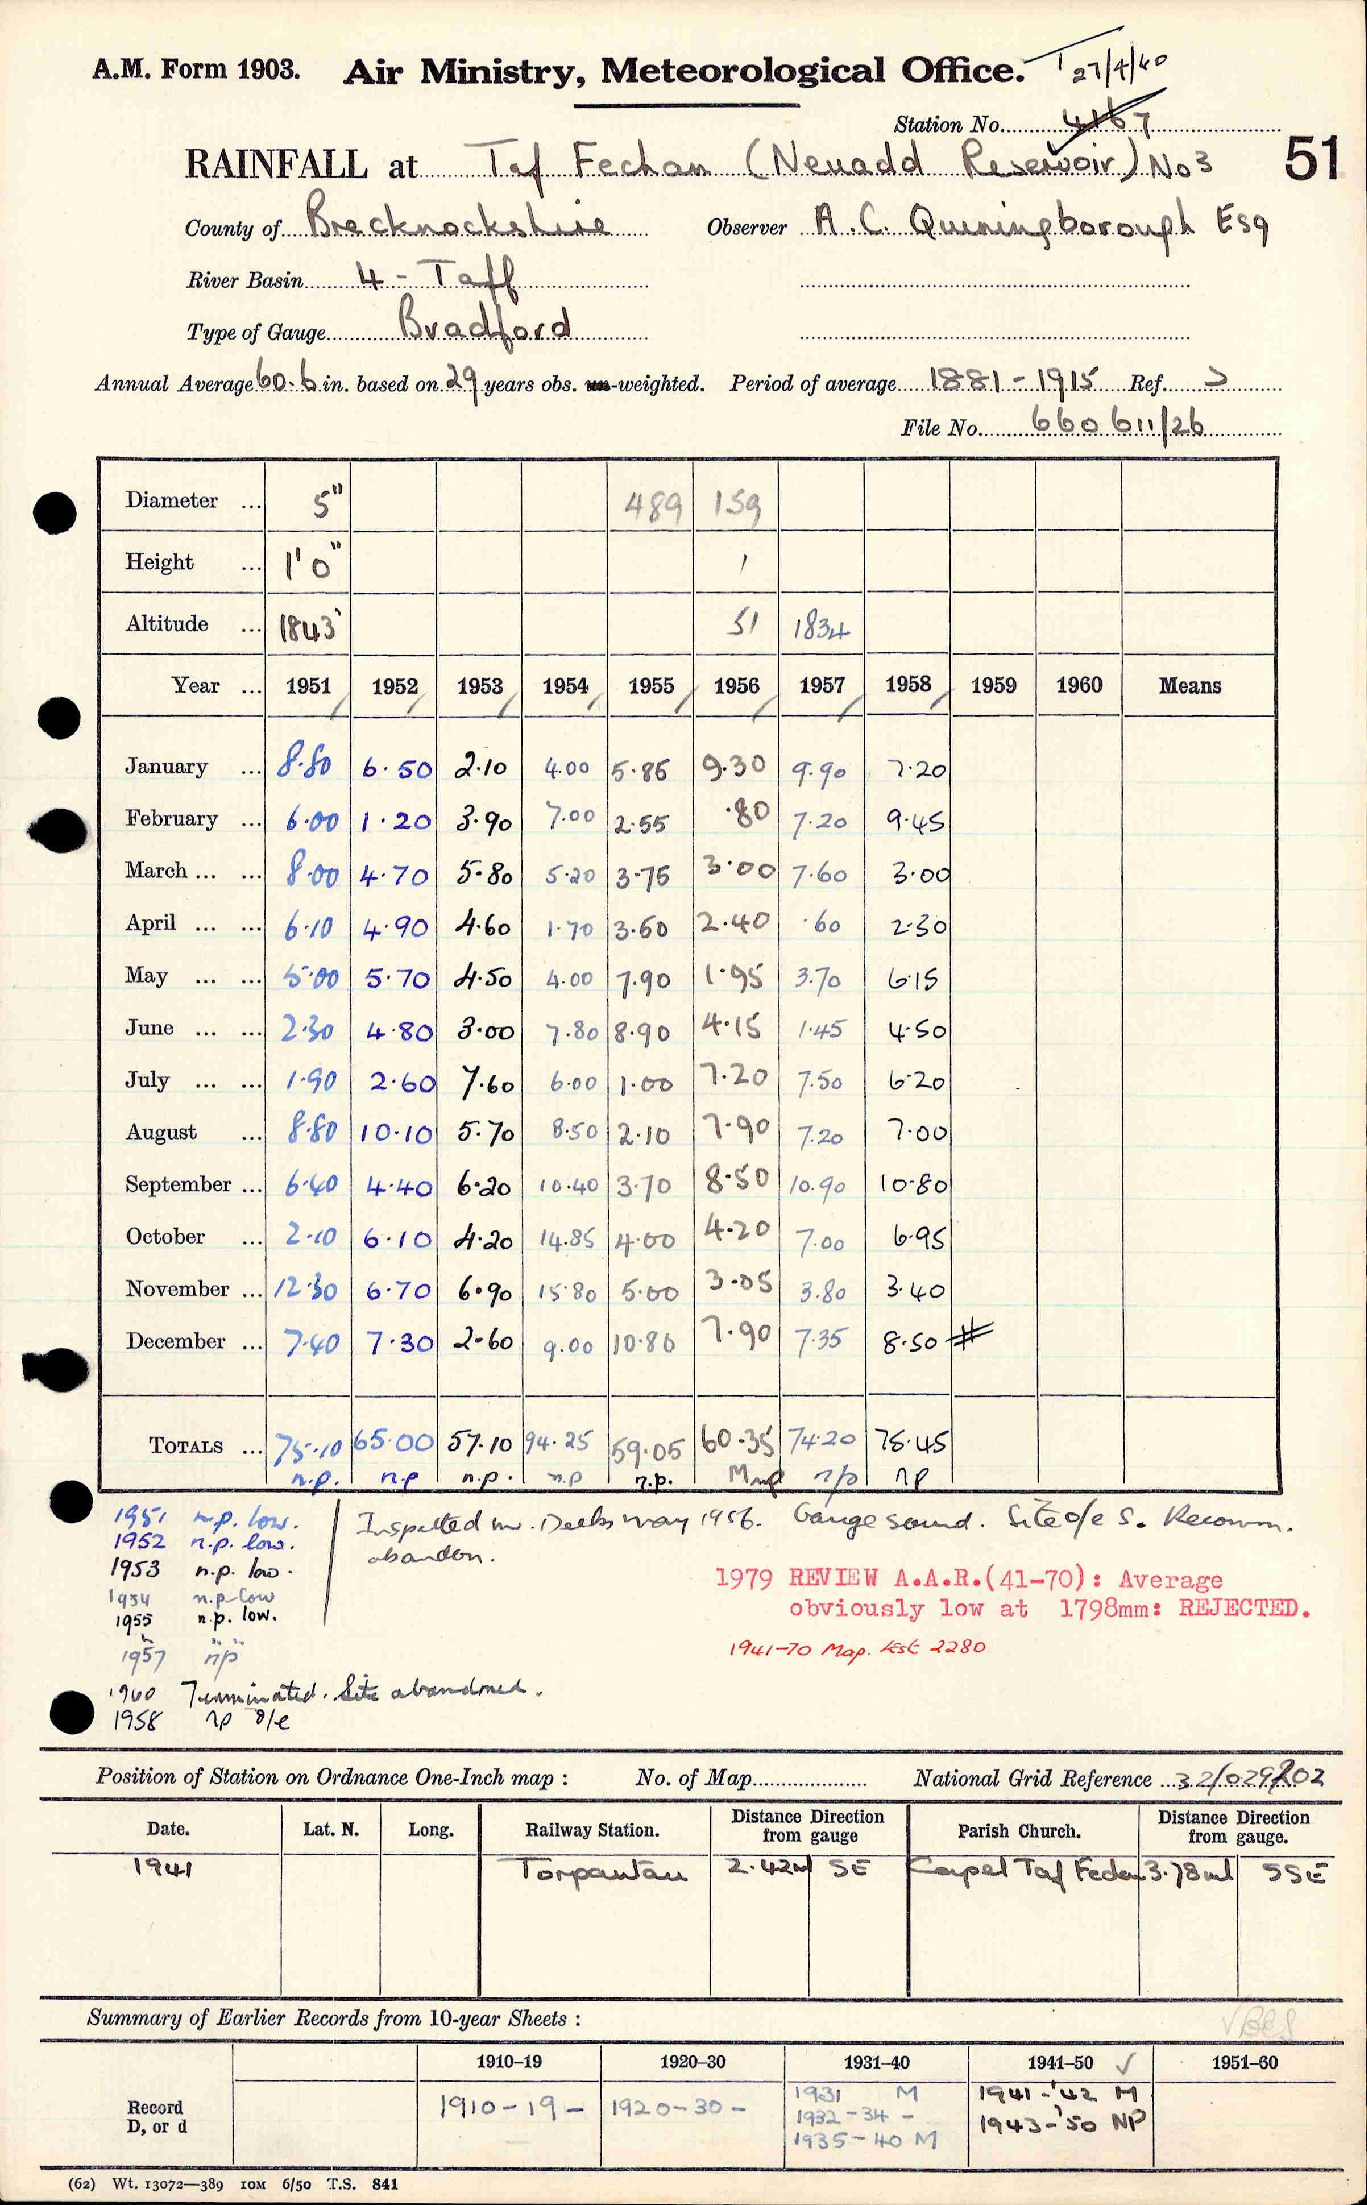 A.M. Form 1903. Air Ministry, Meteorological Office. T 27/4/60
Station No. 4167
RAINFALL at Taf Fechan (Neuadd Reservoir) No 3 51
County of Brecknockshire Observer A.C. Quiningborough Esq
River Basin 4 - Taff
Type of Gauge Bradford
Annual Average 60.6 in. based on 29 years obs. un-weighted. Period of average 1881-1915 Ref. S
File No. 660611/26
Diameter ... 5" 489 159
Height ... 1'0" 1
Altitude ... 1843' 51 1834
Year ... 1951 1952 1953 1954 1955 1956 1957 1958 1959 1960 Means
January ... 8.80 6.50 2.10 4.00 5.85 9.30 9.90 7.20
February ... 6.00 1.20 3.90 7.00 2.55 .80 7.20 9.45
March ... ... 8.00 4.70 5.80 5.20 3.75 3.00 7.60 3.00
April ... ... 6.10 4.90 4.60 1.70 3.60 2.40 .60 2.30
May ... ... 5.00 5.70 4.50 4.00 7.90 1.95 3.70 6.15
June ... ... 2.30 4.80 3.00 7.80 8.90 4.15 1.45 4.50
July ... ... 1.90 2.60 7.60 6.00 1.00 7.20 7.50 6.20
August ... 8.80 10.10 5.70 8.50 2.10 7.90 7.20 7.00
September ... 6.40 4.40 6.20 10.40 3.70 8.50 10.90 10.80
October ... 2.10 6.10 4.20 14.85 4.00 4.20 7.00 6.95
November ... 12.30 6.70 6.90 15.80 5.00 3.05 3.80 3.40
December ... 7.40 7.30 2.60 9.00 10.80 7.90 7.35 8.50 #
TOTALS ... 75.10 65.00 57.10 94.25 59.05 60.35 74.20 75.45
n.p. n.p n.p. n.p n.p. M np n/p np
1951 n.p. low. Inspected mr. Deeks May 1956. Gauge sound. Site o/e S. Recomm.
1952 n.p. low. abandon.
1953 n.p. low.
1954 n.p low
1955 n.p. low.
1957 "np"
1960 Terminated. Site abandoned.
1958 np o/e
1979 REVIEW A.A.R.(41-70): Average
obviously low at 1798mm: REJECTED.
1941-70 Map. Est 2280
Position of Station on Ordnance One-Inch map : No. of Map National Grid Reference 32/029202
Date. Lat. N. Long. Railway Station. Distance Direction from gauge Parish Church. Distance Direction from gauge.
1941 Torpantau 2.42ml SE Capel Taf Fechan 3.78ml SSE
Summary of Earlier Records from 10-year Sheets :
1910–19 1920–30 1931–40 1941–50 ✓ 1951–60
Record D, or d 1910-19- 1920-30- 1931 M 1941-'42 M
1932-34 - 1943-'50 NP
1935-40 M
(62) Wt. 13072—389 10M 6/50 T.S. 841